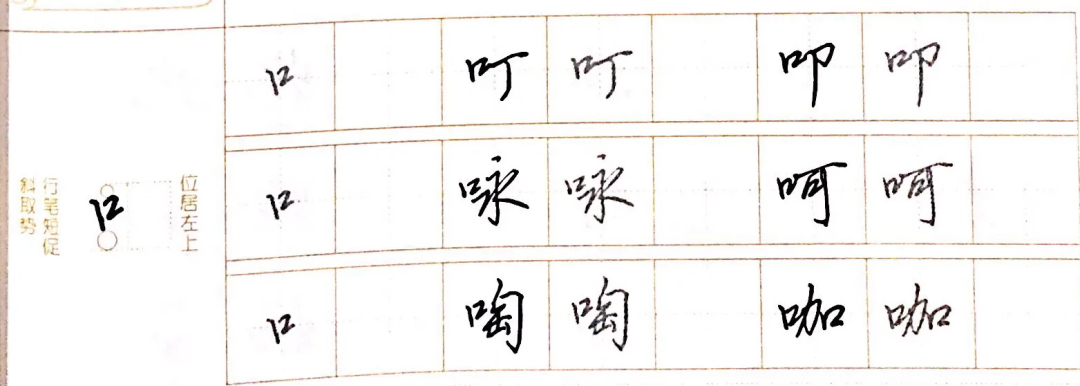 口 叮 叮 叩 叩
位居左上
行笔短促
斜取势
口
口 咏 咏 呵 呵
口 啕 啕 咖 咖